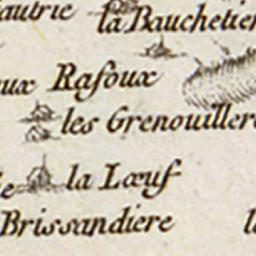 autrie la Bauchetier
ux Rasoux
les Grenouiller
la Lœuf
Brissandiere